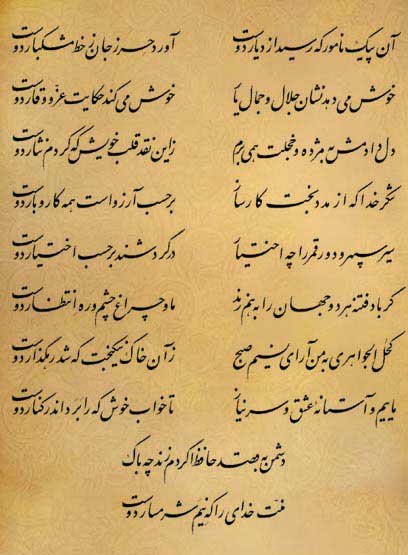 آن پیک نامور که رسید از دیار دوست آورد حرز جان ز خط مشکبار دوست
خوش می دهد نشان جلال و جمال یار خوش می کند حکایت عز و وقار دوست
دل دادمش به مژده و خجلت همی برم زین نقد قلب خویش که کردم نثار دوست
شکر خدا که از مدد بخت کارساز برحسب آرزو است همه کار و بار دوست
سیر سپهر و دور قمر را چه اختیار در گردشند برحسب اختیار دوست
گر باد فتنه هر دو جهان را به هم زند ما و چراغ چشم و ره انتظار دوست
کحل الجواهری به من آر ای نسیم صبح زآن خاک نیکبخت که شد رهگذار دوست
ماییم و آستانهٔ عشق و سر نیاز تا خواب خوش که را برد اندر کنار دوست
دشمن به قصد حافظ اگر دم زند چه باک
منّت خدای را که نیم شرمسار دوست